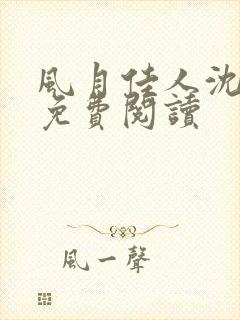 風月佳人沈
免費閱讀
風一聲